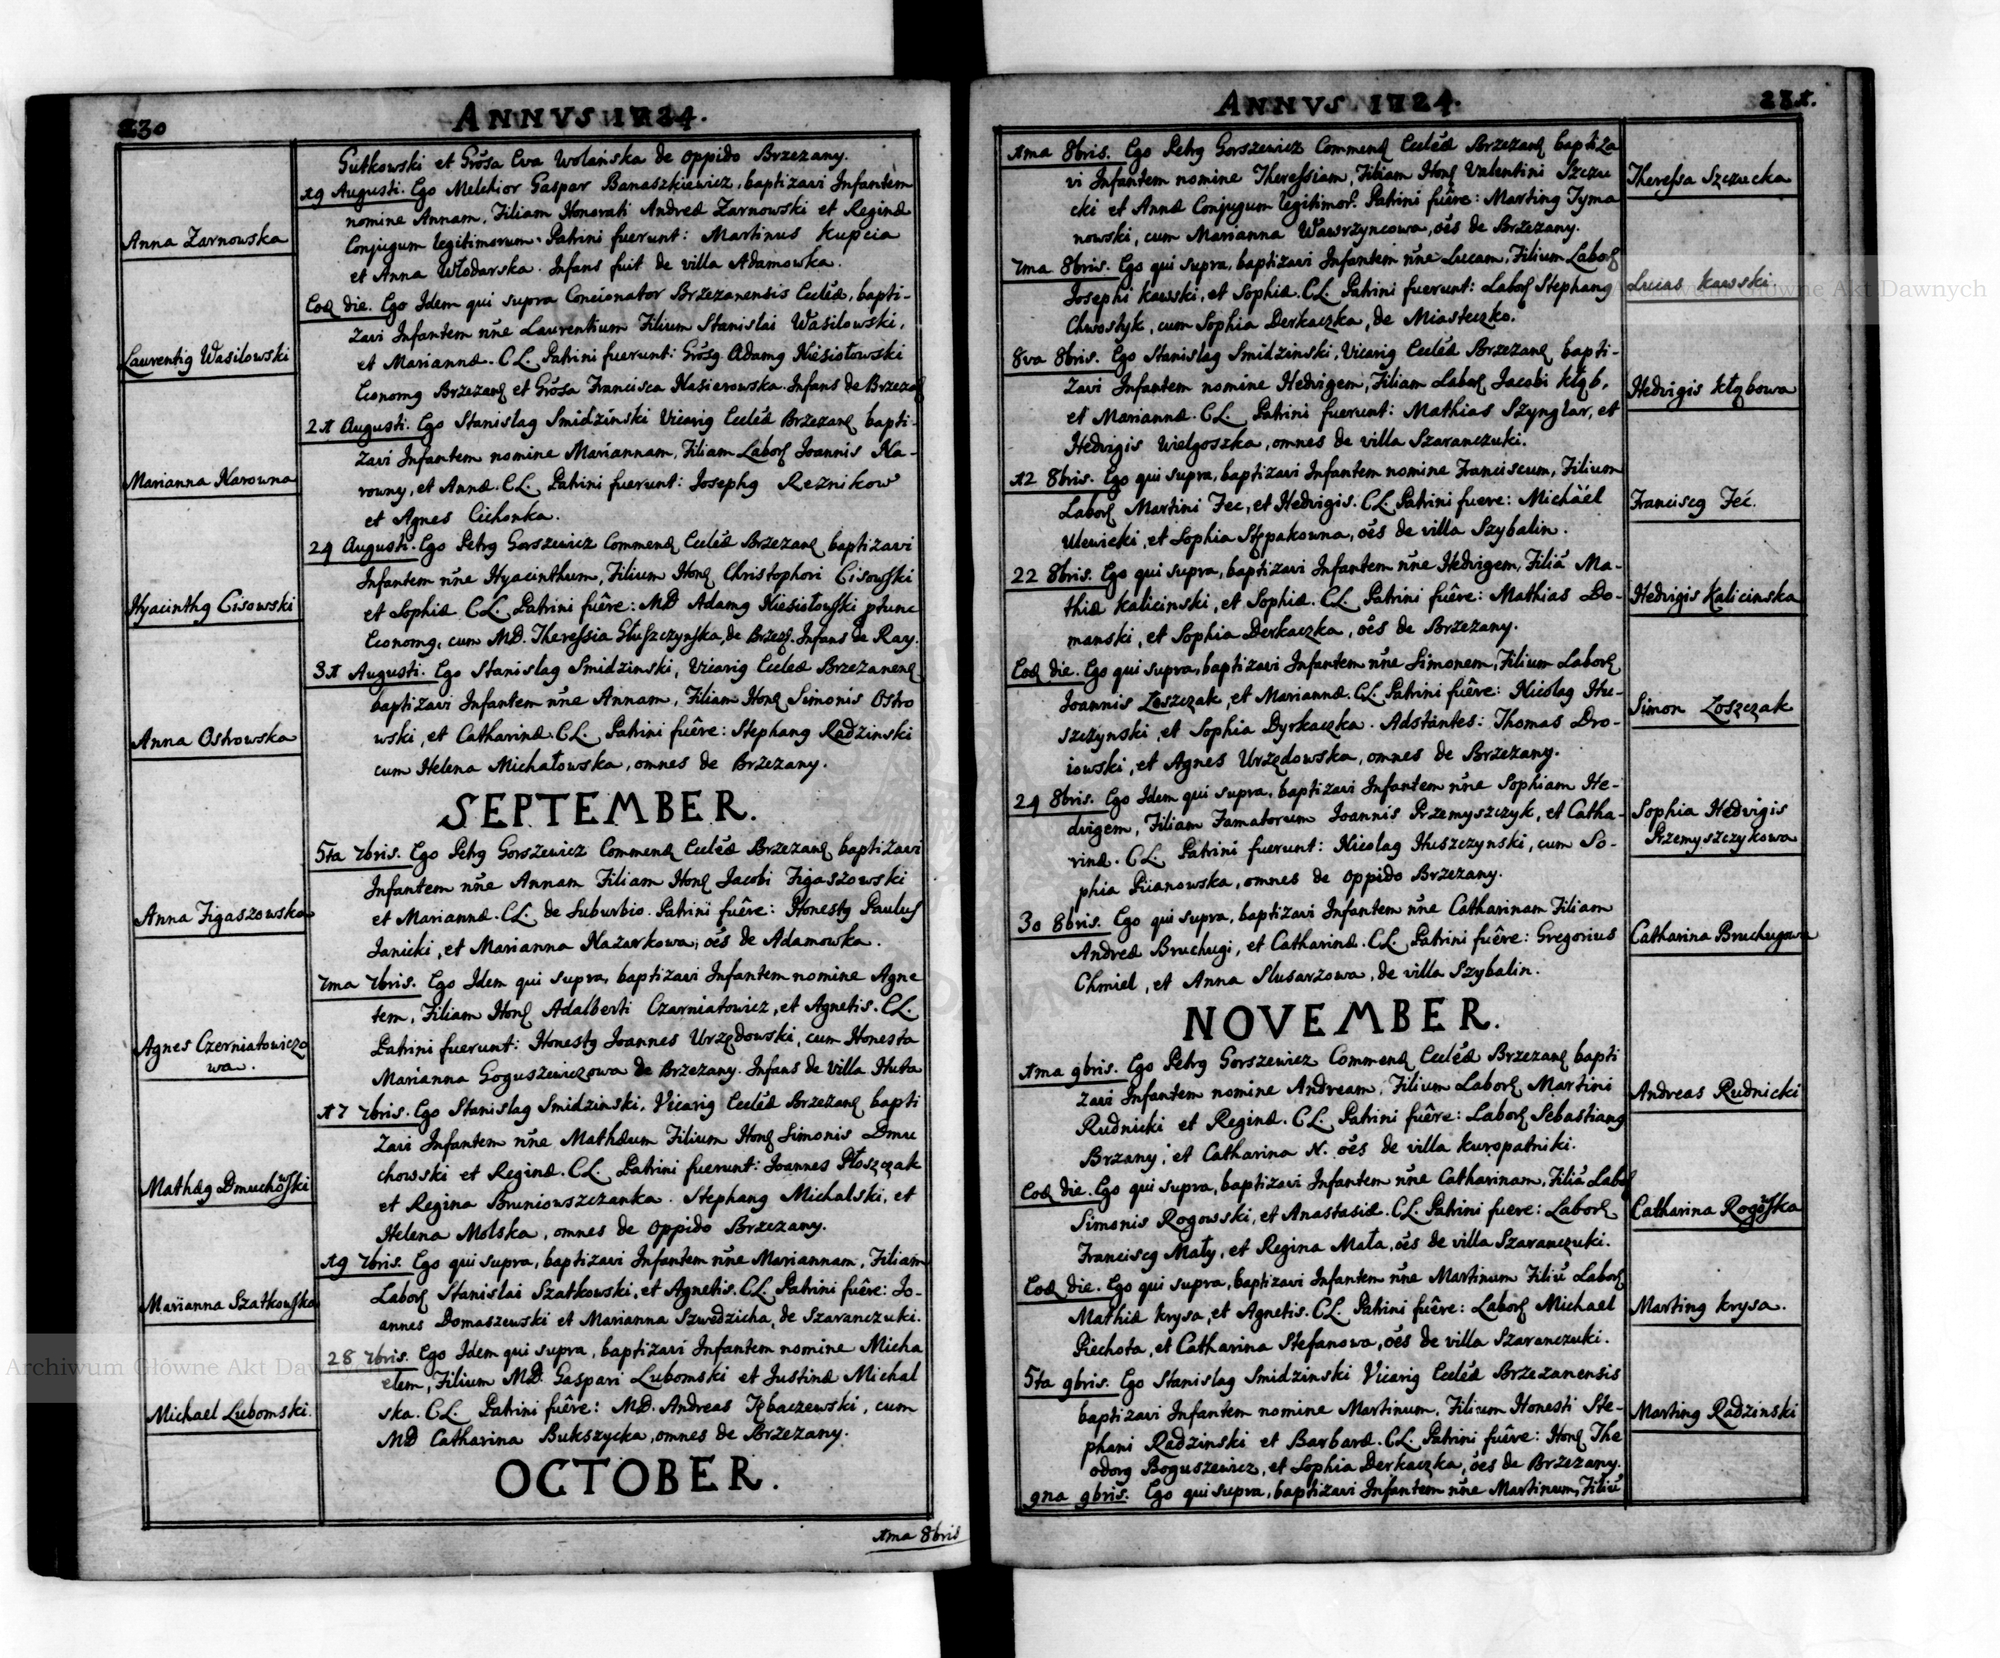 230
ANNVS 1724.
Gutkowski et Grosa Eva Wolańska de oppido Brzezany.
19 Augusti. Ego Melchior Gaspar Banaszkiewicz, baptizavi Infantem
nomine Annam, Filiam Honorati Andreæ Zarnowski et Reginæ
Conjugum legitimorum. Patrini fuerunt: Martinus Kupcia
et Anna Włodarska. Infans fuit de villa Adamowka.
Anna Zarnowska
Eod die. Ego Idem qui supra Concionator Brzezanensis Eccleæ, bapti-
zavi Infantem nne Laurentium Filium Stanislai Wasilowski,
et Mariannæ. C.L. Patrini fuerunt: Grosq Adamq Niesiołowski
Economq Brzezanen et Grosa Francisca Nasierowska. Infans de Brzezan
Laurentiq Wasilowski
21 Augusti. Ego Stanislaq Smidzinski Vicariq Eccleæ Brzezanen bapti-
zavi Infantem nomine Mariannam, Filiam Labor Joannis Na-
rowny, et Annæ. C.L. Patrini fuerunt: Josephq Reznikow
et Agnes Cichonka.
Marianna Narowna
24 Augusti. Ego Petrq Gorszewicz Commen Eccleæ Brzezanen baptizavi
Infantem nne Hyacinthum, Filium Hon Christophori Cisowski
et Sophiæ C.L. Patrini fuêre: MD Adamq Niesiołowski ptunc
Economq, cum MD. Theressia Głuszczynska, de Brzez. Infans de Ray.
Hyacinthq Cisowski
31 Augusti. Ego Stanislaq Smidzinski, Vicariq Eccleæ Brzezanen
baptizavi Infantem nne Annam, Filiam Hon Simonis Ostro
wski, et Catharinæ. C.L. Patrini fuêre: Stephanq Radzinski
cum Helena Michałowska, omnes de Brzezany.
Anna Ostrowska
SEPTEMBER.
5ta 7bris. Ego Petrq Gorszewicz Commen Eccleæ Brzezanen baptizavi
Infantem nne Annam Filiam Hon Jacobi Figaszowski
et Mariannæ. C.L. de Suburbio. Patrini fuêre: Honestq Paulus
Janicki, et Marianna Nazarkowa, oes de Adamowka.
Anna Figaszowska
7ma 7bris. Ego Idem qui supra, baptizavi Infantem nomine Agne
tem, Filiam Hon Adalberti Czarniatowicz, et Agnetis. C.L.
Patrini fuerunt: Honestq Joannes Urzędowski, cum Honesta
Marianna Goguszewiczowa de Brzezany. Infans de villa Huta
Agnes Czerniatowiczo
wa.
17 7bris. Ego Stanislaq Smidzinski, Vicariq Eccleæ Brzezanen bapti
zavi Infantem nne Mathæum Filium Hon Simonis Dmu
chowski et Reginæ. C.L. Patrini fuerunt: Joannes Płoszczak
et Regina Bruniowszczanka. Stephanq Michalski, et
Helena Molska, omnes de oppido Brzezany.
Mathæq Dmuchowski
19 7bris. Ego qui supra, baptizavi Infantem nne Mariannam, Filiam
Labor Stanislai Szatkowski, et Agnetis. C.L. Patrini fuêre: Jo-
annes Domaszewski et Marianna Szwedzicha, de Szaranczuki.
Marianna Szatkowska
28 7bris. Ego Idem qui supra, baptizavi Infantem nomine Micha
elem, Filium MD. Gaspari Lubomski et Justinæ Michal
ska. C.L. Patrini fuêre: MD. Andreas Kębaczewski, cum
MD Catharina Bukszycka, omnes de Brzezany.
Michael Lubomski.
OCTOBER.
1ma 8bris
ANNVS 1724.
231.
1ma 8bris. Ego Petrq Gorszewicz Commen Eccleæ Brzezanen baptiza
vi Infantem nomine Theressiam, Filiam Hon Valentini Szczu
cki et Annæ Conjugum legitimor. Patrini fuêre: Martinq Tyma
nowski, cum Marianna Wawrzyncowa, oes de Brzezany.
Theressa Szczucka
7ma 8bris. Ego qui supra, baptizavi Infantem nne Lucam, Filium Labor
Josephi Kawski, et Sophiæ. C.L. Patrini fuerunt: Labor Stephanq
Chwostyk, cum Sophia Derkaczka, de Miasteczko.
Lucas Kawski
8va 8bris. Ego Stanislaq Smidzinski, Vicariq Eccleæ Brzezanen bapti-
zavi Infantem nomine Hedvigem, Filiam Labor Jacobi Kłąb,
et Mariannæ. C.L. Patrini fuerunt: Mathias Szynglar, et
Hedvigis Wielgoszka, omnes de villa Szaranczuki.
Hedvigis Kłąbowa
12 8bris. Ego qui supra, baptizavi Infantem nomine Franciscum, Filium
Labor Martini Fec, et Hedvigis. C.L. Patrini fuere: Michäel
Ulewicki, et Sophia Stępakowna, oes de villa Szybalin.
Franciscq Feć.
22 8bris. Ego qui supra, baptizavi Infantem nne Hedvigem, Filiā Ma-
thiæ Kalicinski, et Sophiæ. C.L. Patrini fuêre: Mathias Do-
manski, et Sophia Derkaczka, oes de Brzezany.
Hedvigis Kalicinska
Eod die. Ego qui supra, baptizavi Infantem nne Simonem, Filium Labor
Joannis Loszczak, et Mariannæ. C.L. Patrini fuêre: Nicolaq Hu-
szczynski, et Sophia Dyrkaczka. Adstantes: Thomas Dro-
iowski, et Agnes Urzędowska, omnes de Brzezany.
Simon Loszczak
24 8bris. Ego Idem qui supra, baptizavi Infantem nne Sophiam He-
dvigem, Filiam Famatorum Joannis Przemyszczyk, et Catha-
rinæ. C.L. Patrini fuerunt: Nicolaq Huszczynski, cum So-
phia Piianowska, omnes de oppido Brzezany.
Sophia Hedvigis
Przemyszczykowa
30 8bris. Ego qui supra, baptizavi Infantem nne Catharinam Filiam
Andreæ Bruchugi, et Catharinæ. C.L. Patrini fuêre: Gregorius
Chmiel, et Anna Slusarzowa, de villa Szybalin.
Catharina Bruchugowa
NOVEMBER.
1ma 9bris. Ego Petrq Gorszewicz Commen Eccleæ Brzezanen bapti
zavi Infantem nomine Andream, Filium Labor Martini
Rudnicki et Reginæ. C.L. Patrini fuêre: Labor Sebastianq
Brzany, et Catharina N. oes de villa Kuropatniki.
Andreas Rudnicki
Eod die. Ego qui supra, baptizavi Infantem nne Catharinam, Filiā Labor
Simonis Rogowski, et Anastasiæ. C.L. Patrini fuere: Labor
Franciscq Mały, et Regina Mała, oes de villa Szaranczuki.
Catharina Rogowska
Eod die. Ego qui supra, baptizavi Infantem nne Martinum Filiū Labor
Mathiæ Krysa, et Agnetis. C.L. Patrini fuêre: Labor Michael
Piechota, et Catharina Stefanowa, oes de villa Szaranczuki.
Martinq Krysa.
5ta 9bris. Ego Stanislaq Smidzinski Vicariq Eccleæ Brzezanensis
baptizavi Infantem nomine Martinum, Filium Honesti Ste-
phani Radzinski et Barbaræ. C.L. Patrini fuêre: Hon The
odorq Boguszewicz, et Sophia Derkaczka, oes de Brzezany.
Martinq Radzinski
9na 9bris. Ego qui supra, baptizavi Infantem nne Martinum, Filiū
Archiwum Główne Akt Dawnych
Archiwum Główne Akt Dawnych